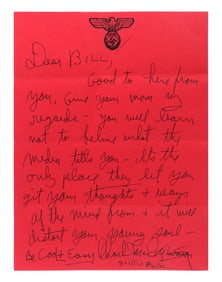 Dear BILL,
Good to here from
you, Give your mom my
regards - you will learn
not to believe what the
media tells you - Its the
only place they let you
git your thoughts & ways
of the mind from & it will
distort your young soul -
& God Easy Charles Manson